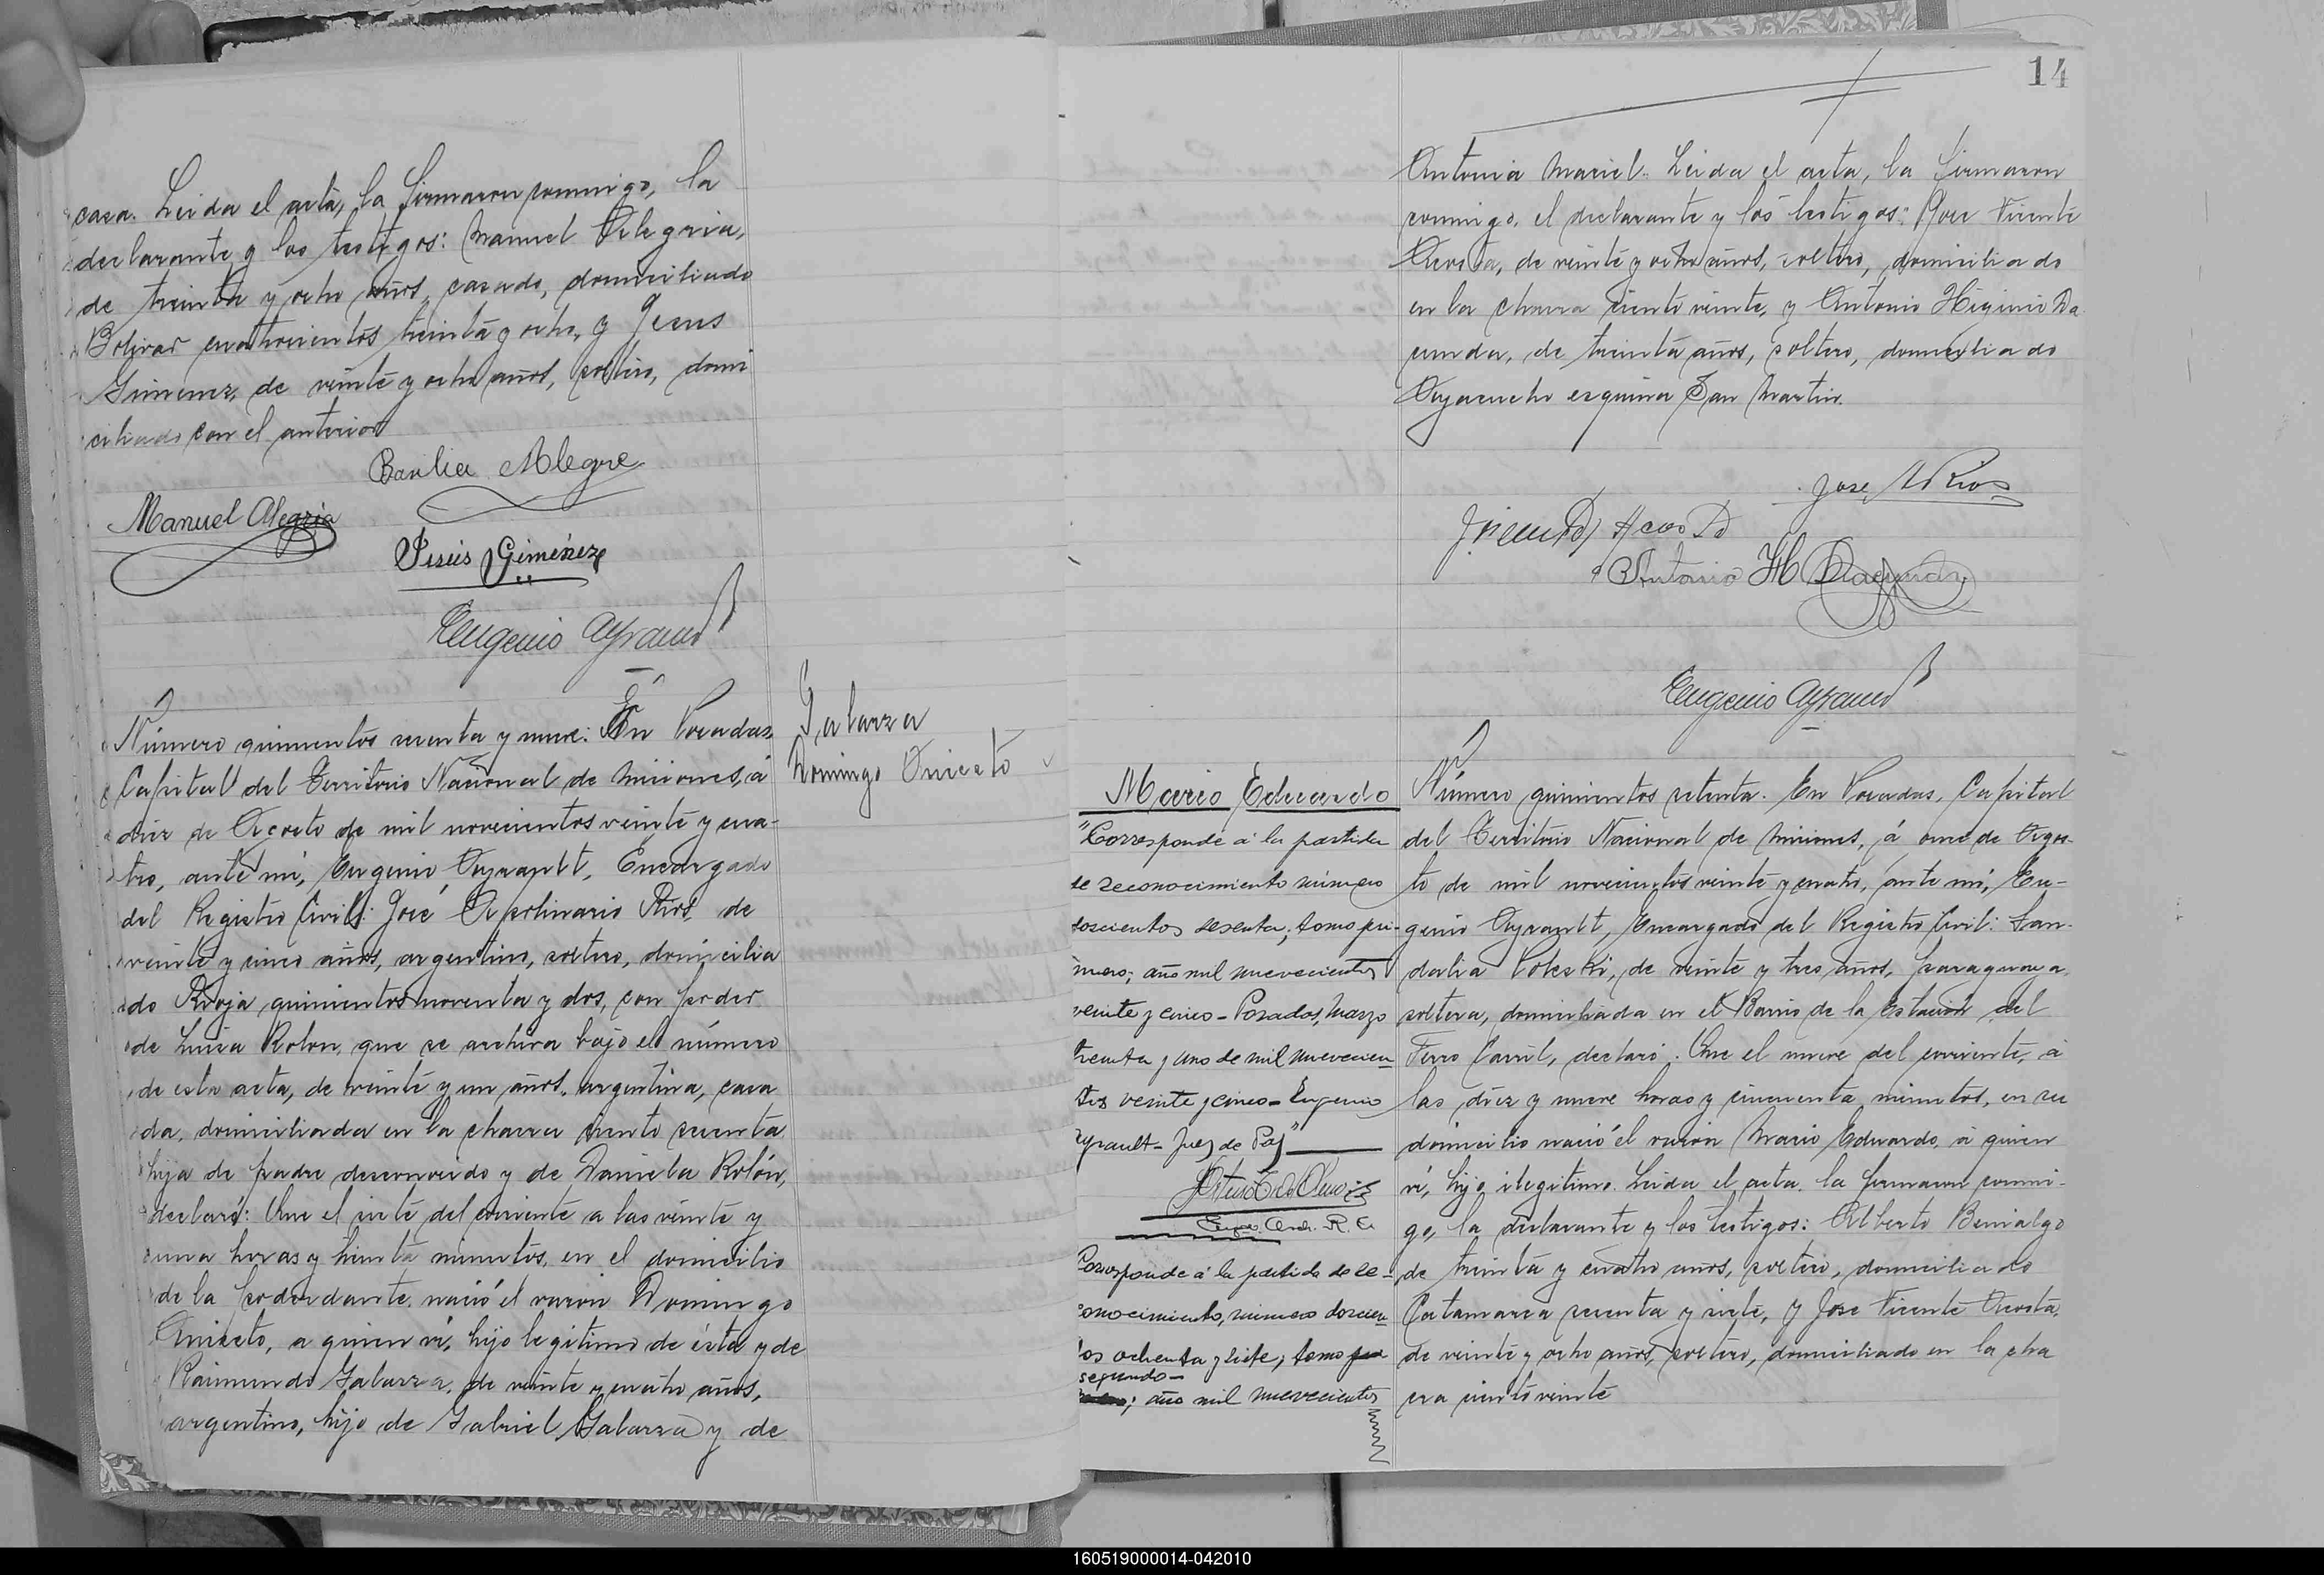 casa. Leida el acta, la firmaron conmigo, la
declarante y los testigos: Manuel Alegria,
de treinta y ocho años, casado, domiciliado
Bolivar cuatrocientos treinta y ocho, y Jesus
Gimenez, de veinte y ocho años, soltero, domi
ciliado con el anterior
Basilia Alegre
Manuel Alegria
Jesús Giménez
Eugenio Ayrault
Número quinientos sesenta y nueve: En Posadas,
Capital del Territorio Nacional de Misiones, á
diez de Agosto de mil novecientos veinte y cua-
tro, ante mi, Eugenio Ayrault, Encargado
del Registro Civil: José Apolinario Rios, de
veinte y cinco años, argentino, soltero, domicilia
do Rioja quinientos noventa y dos, con poder
de Luisa Rolon, que se archiva bajo el número
de esta acta, de veinte y un años, argentina, casa
da, domiciliada en la chacra ciento sesenta
hija de padre desconocido y de Daniela Rolón,
declaró: Que el siete del corriente a las veinte y
una horas y treinta minutos, en el domicilio
de la poderdante, nació el varon Domingo
Aniceto, a quien ví, hijo legitimo de ésta y de
Raimundo Galarza, de veinte y cuatro años,
argentino, hijo de Gabriel Galarza y de
Galarza
Domingo Aniceto
14
Antonia Maciel. Leida el acta, la firmaron
conmigo, el declarante y los testigos: José Vicente
Acosta, de veinte y ocho años, soltero, domiciliado
en la chacra ciento veinte, y Antonio Higinio Da
cunda, de treinta años, soltero, domiciliado
Ayacucho esquina San Martin.
Jose A Rios
J. Vicente Acosta
Antonio H Dacunda
Eugenio Ayrault
Mario Eduardo
"Corresponde á la partida
de reconocimiento número
doscientos sesenta; tomo pri-
mero; año mil nuevecientos
veinte y cinco - Posadas, Marzo
treinta y uno de mil nuevecien
tos veinte y cinco - Eugenio
Ayrault - Juez de Paz"
R. C.
Corresponde á la partida de re-
conocimiento, número doscien
tos ochenta y siete; tomo
segundo -
; año mil nuevecientos
Número quinientos setenta. En Posadas, Capital
del Territorio Nacional de Misiones, á once de Agos-
to de mil novecientos veinte y cuatro, ante mi, Eu-
genio Ayrault, Encargado del Registro Civil: San-
dalia Poleski, de veinte y tres años, paraguaya,
soltera, domiciliada en el Barrio de la Estación del
Ferro Carril, declaró: Que el nueve del corriente, á
las diez y nueve horas y cincuenta minutos, en su
domicilio nació el varón Mario Eduardo, á quien
ví, hijo ilegitimo. Leida el acta, la firmaron conmi-
go, la declarante y los testigos: Alberto Benialgo
de treinta y cuatro años, soltero, domiciliado
Catamarca sesenta y siete, y Jose Vicente Acosta,
de veinte y ocho años, soltero, domiciliado en la cha
cra ciento veinte
160519000014-042010